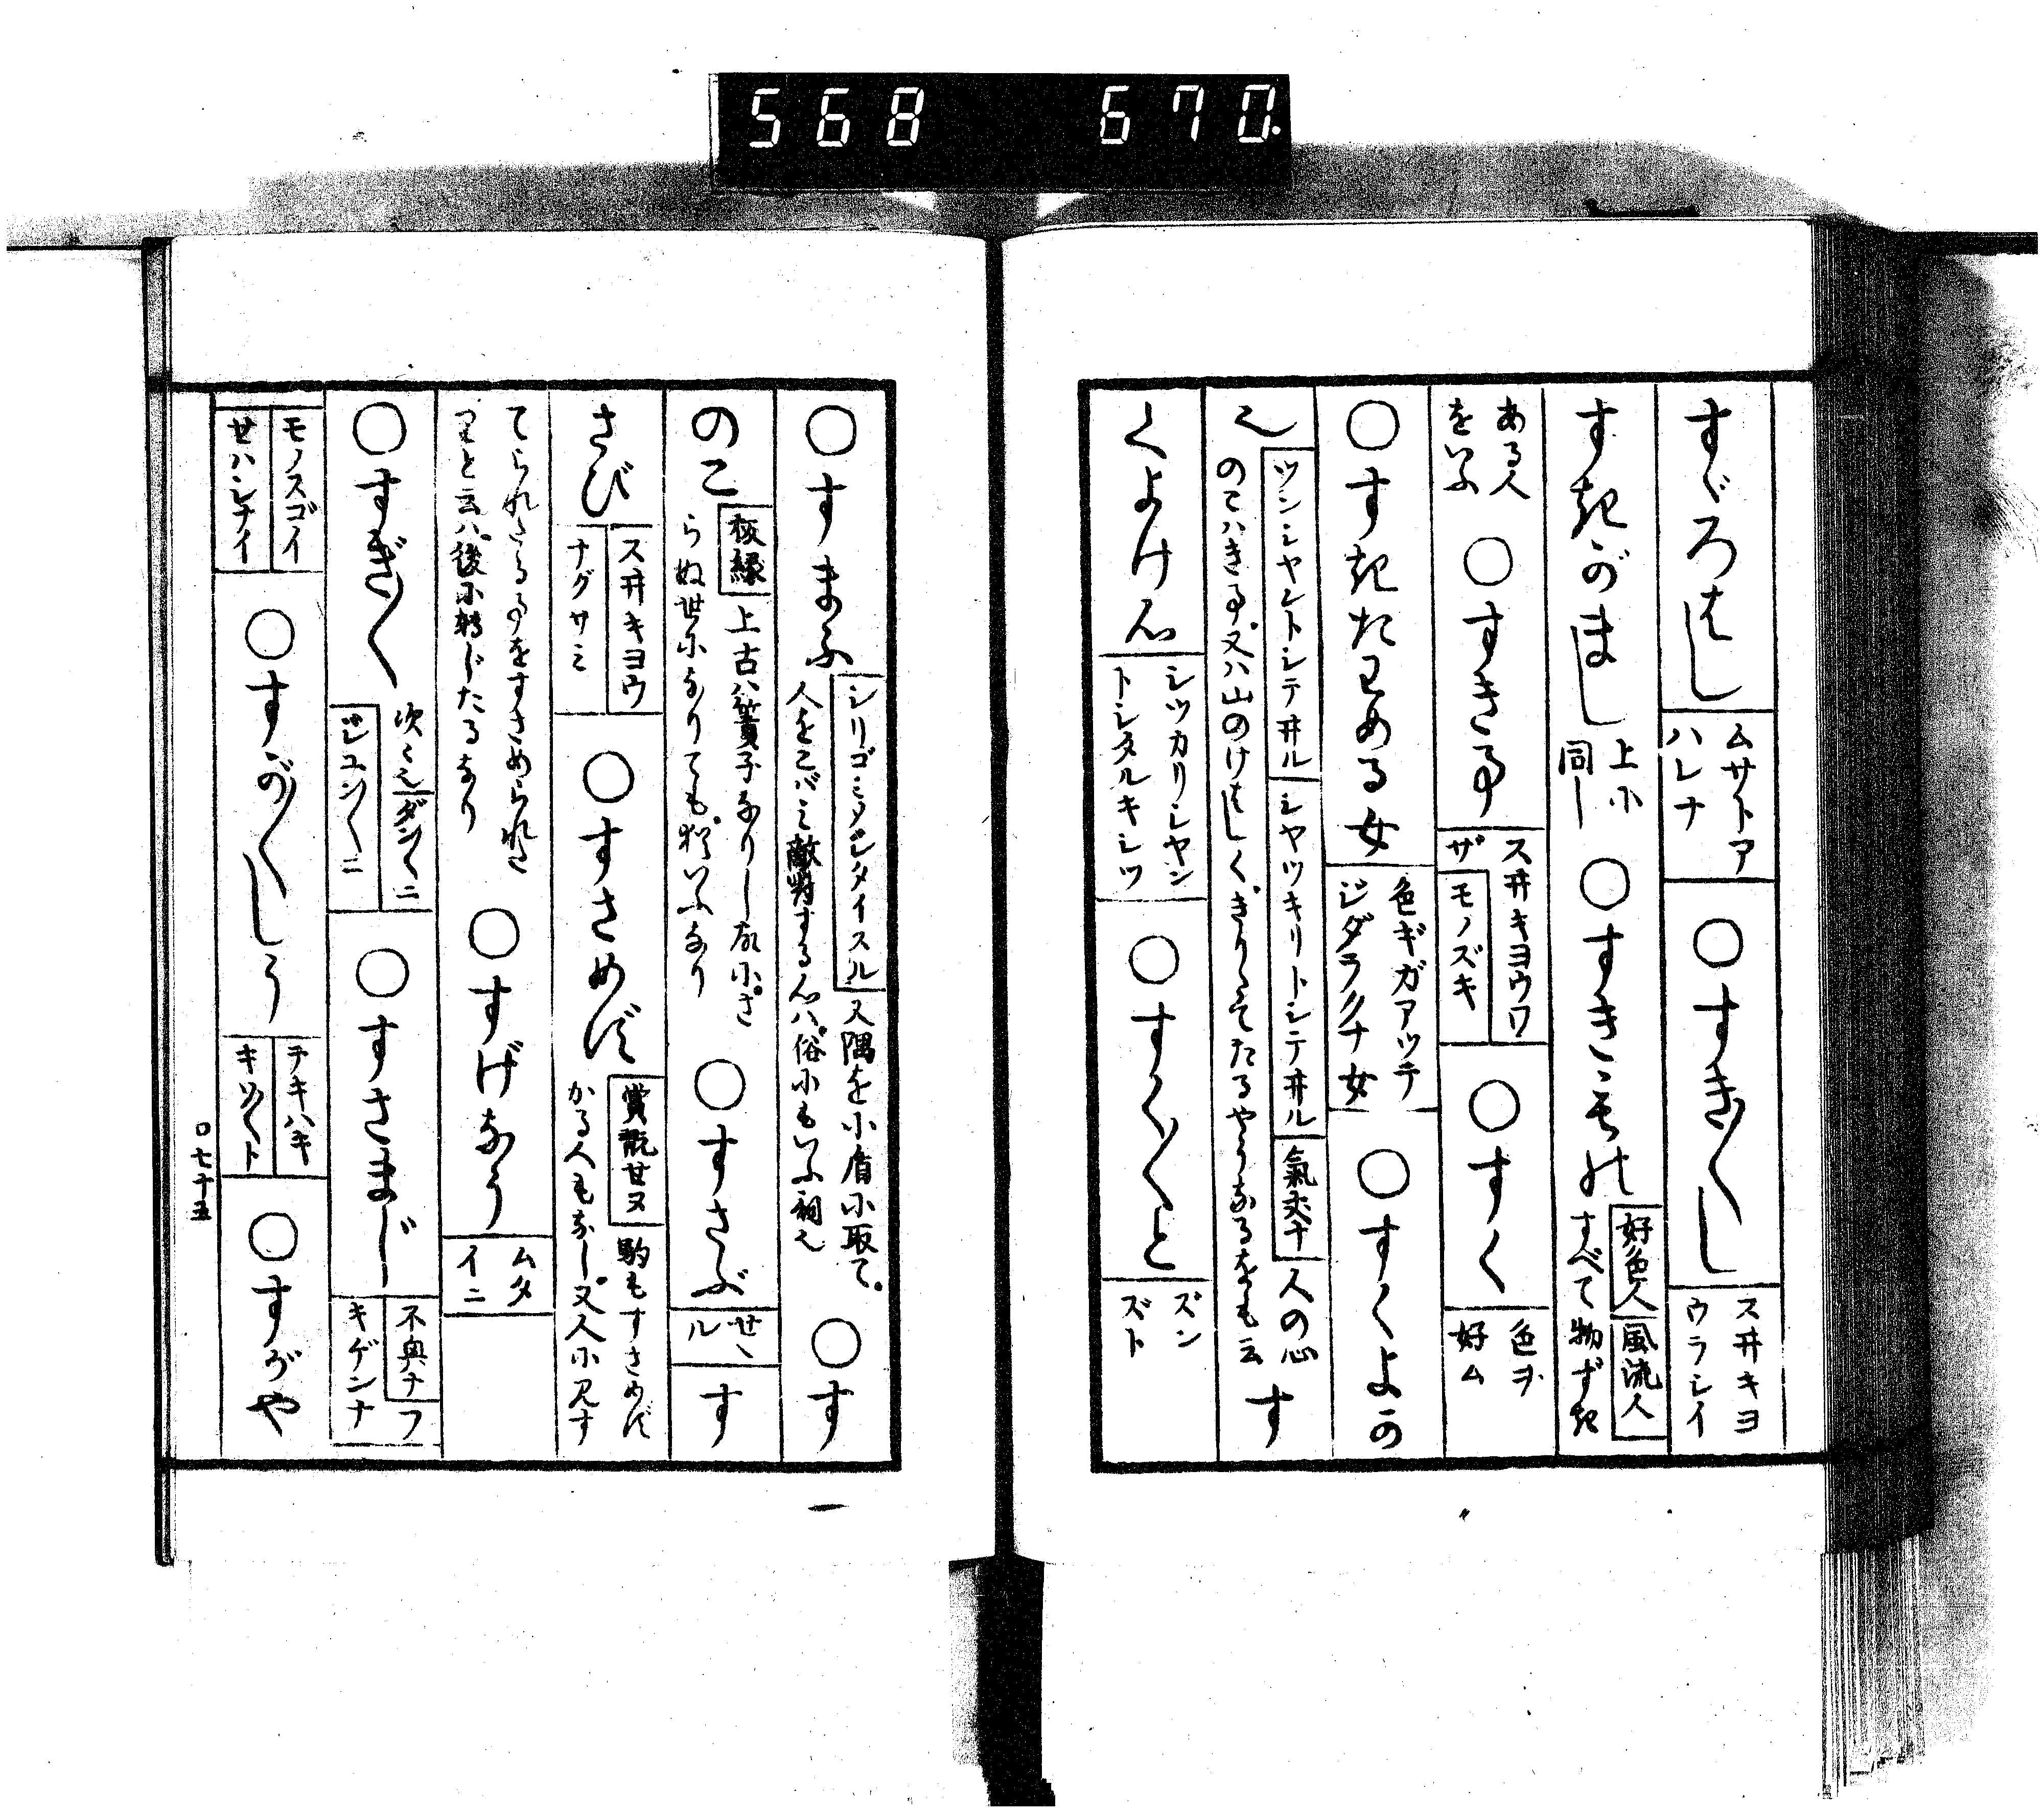 568 670.
すゞろはし ムサトア
ハレナ ○すき〴〵し スヰキヨ
ウラシイ
すきがまし 上に
同じ ○すきゞもの 好色人 風流人
すべて物ずき
ある人
をいふ ○すきる事 スヰキヨウワ
ザ モノズキ ○すく 色ヲ
好ム
○すきたわめる女 色ギガアツテ
ジダラクナ女 ○すくよか
ツンシヤントシテヰル シヤツキリトシテヰル 氣丈ナ 人の心
のこはき事又ハ山のけはしくきりたてたるやうなるをも云
也 す
くよけ心 シツカリシヤン
トシタルキシツ ○すく〳〵と ズン
ズト
○すまふ シリゴミダジタイスル 又隅を小盾に取て。
人をこばミ敵對する心ハ俗にもいふ詞也 ○す
のこ 板縁 上古ハ簀子なりし故に。さ
らぬ世になりても。猶いふなり ○すさぶ せゝ
ル す
さび スヰキヨウ
ナグサミ ○すさめず 賞翫せヌ 駒もすさめず
かる人もなし。又人に見す
てられたる事をすさめられた
りと云ハ。後に轉じたるなり ○すげなう ムタ
イニ
○すぎ〳〵 次々也 ダン〳〵ニ
ジユン〳〵ニ ○すさまじ 不興ナ フ
キゲンナ
モノスゴイ
せハシナイ ○すが〳〵しう テキハキ
キツ〳〵ト ○すがや
○七十五